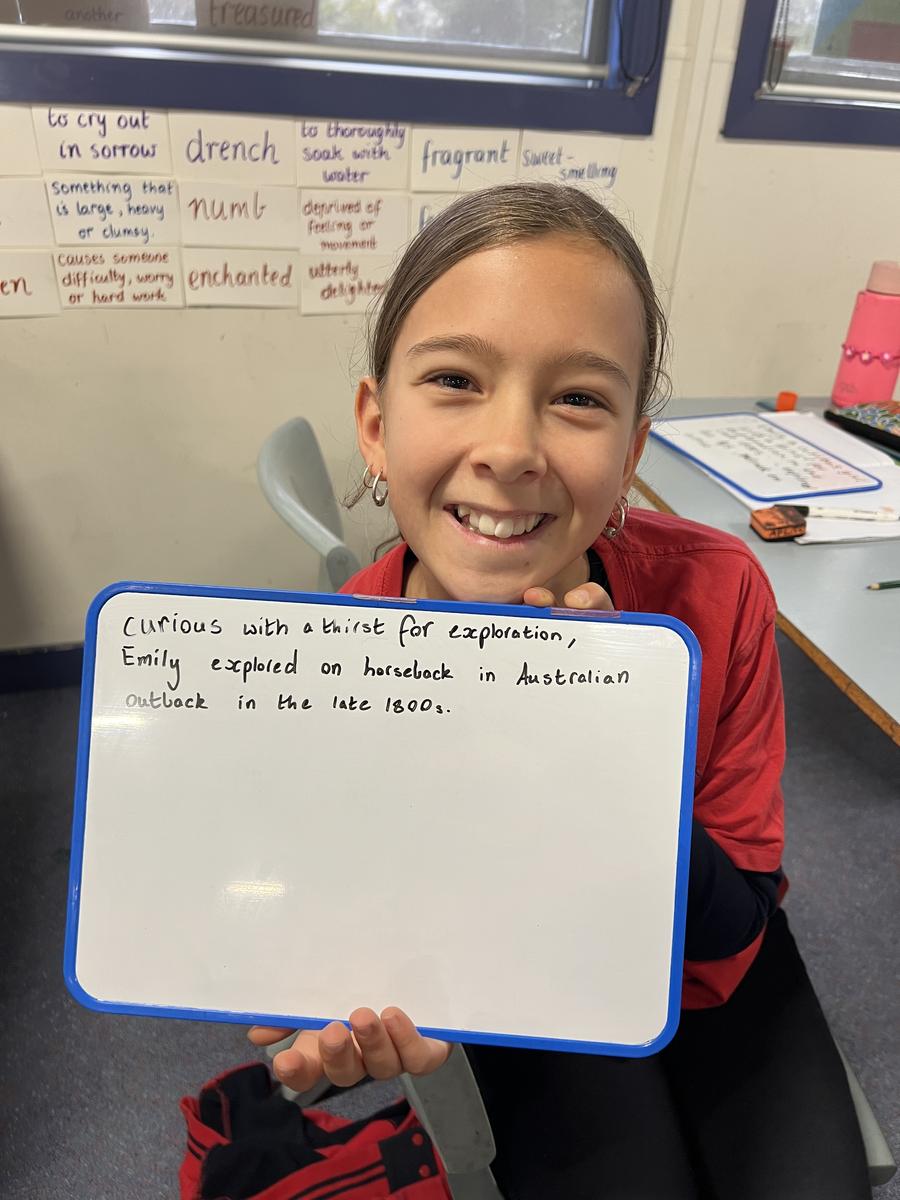 another
treasured
to cry out
in sorrow
drench
to thoroughly
soak with
water
fragrant
sweet-
smelling
something that
is large, heavy
or clumsy.
numb
deprived of
feeling or
movement
en
causes someone
difficulty, worry
or hard work
enchanted
utterly
curious with a thirst for exploration,
Emily explored on horseback in Australian
outback in the late 1800s.